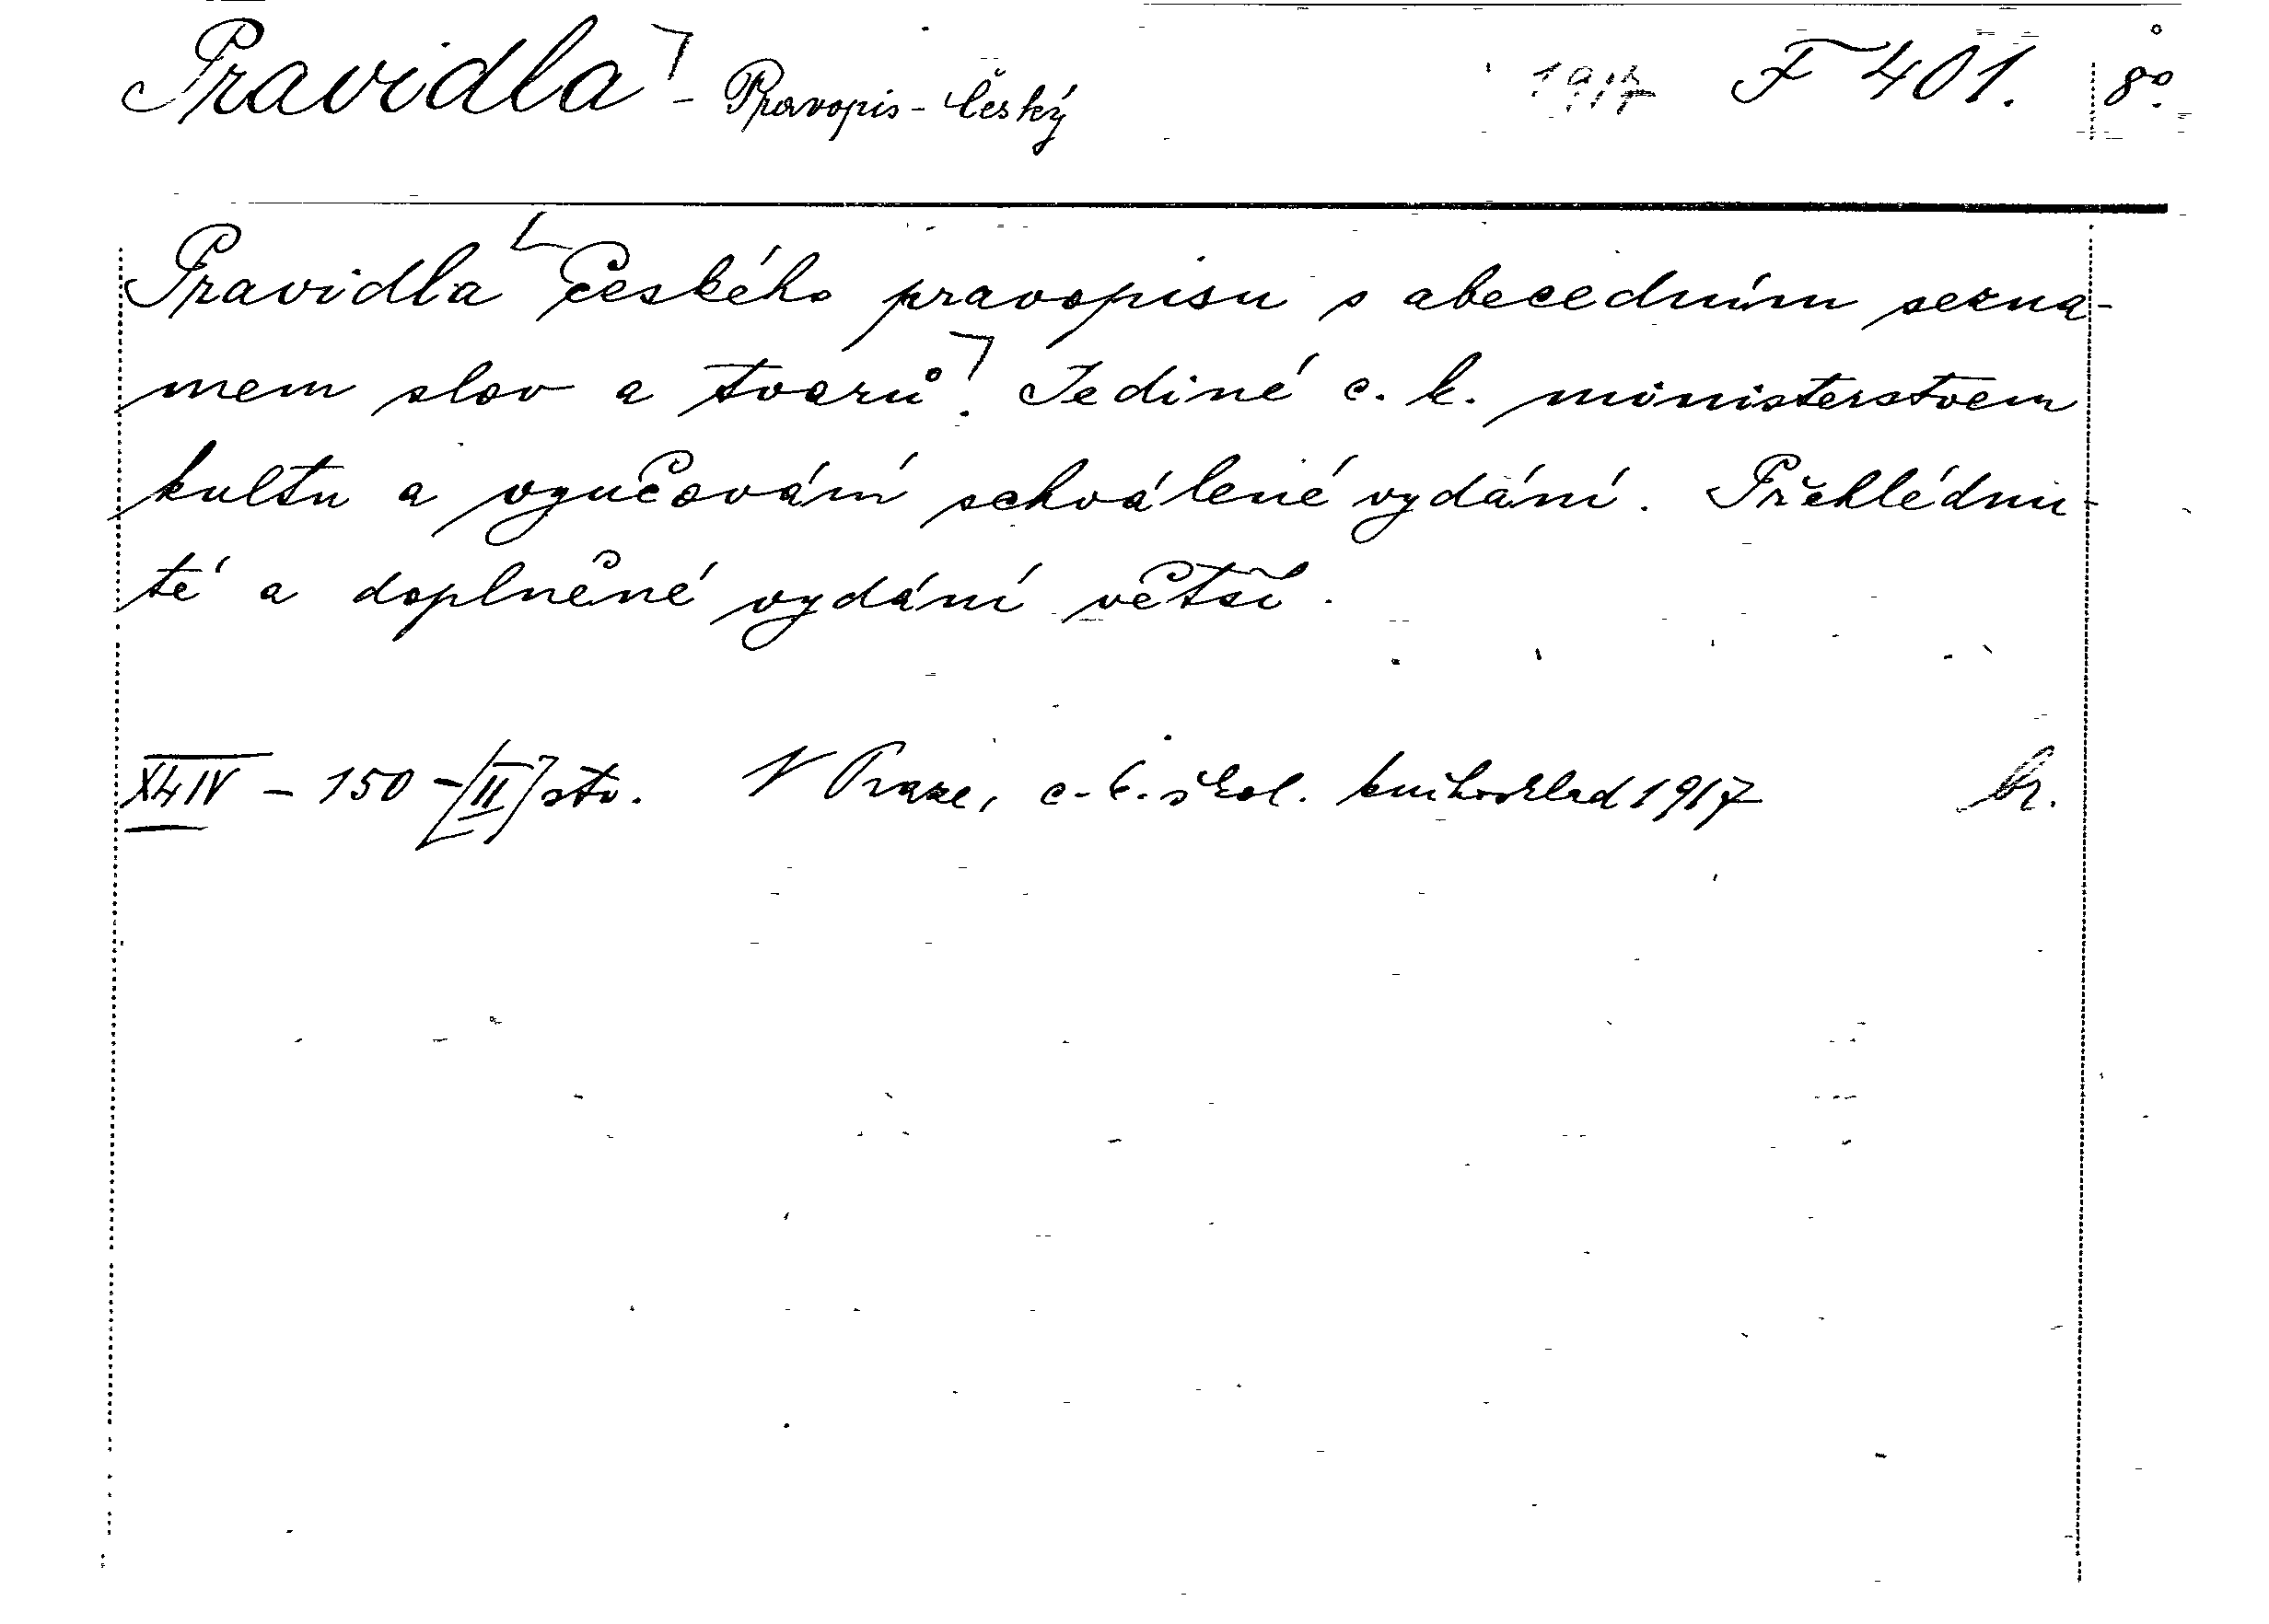 Pravidla - Pravopis - český 1917 F 401. 8°.
Pravidla českého pravopisu s abecedním sezna-
mem slov a tvarů. Jediné c. k. ministerstvem
kultu a vyučování schválené vydání. Přehlédnu-
té a doplněné vydání větší.
XLIV - 150 - [II] str. V Praze, c. k. škol. knihosklad 1917 br.